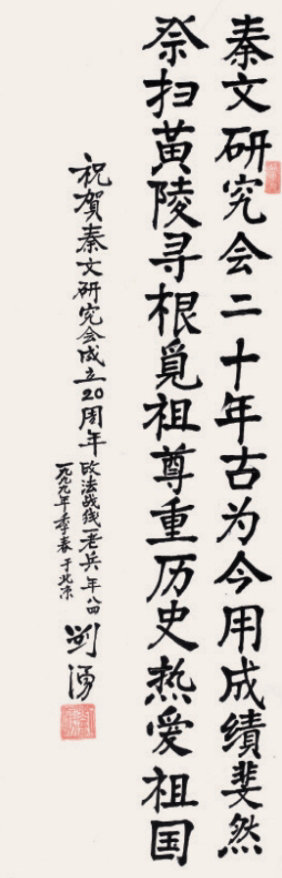 秦文研究会二十年古为今用成绩斐然
祭扫黄陵寻根觅祖尊重历史热爱祖国
祝贺秦文研究会成立20周年
政法战线一老兵年八四
一九九九年季春于北京
刘湧